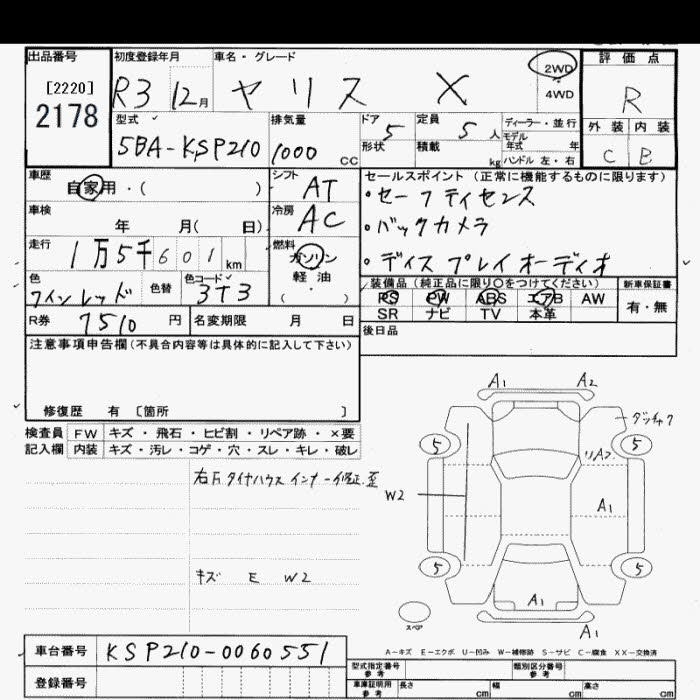 出品番号
[2220]
2178
初度登録年月
R3 12月
車名・グレード
ヤリス X
2WD
4WD
評価点
R
外装 内装
C B
型式
5BA-KSP210
排気量
1000 CC
ドア 5
形状
定員 5人
積載 kg
ディーラー・並行
モデル年式 年
ハンドル 左・右
車歴
自家用・( )
シフト AT
車検
年 月( 日)
冷房 AC
走行
1万5千601km
燃料
ガソリン
軽・油
( )
色
ワインレッド
色替
色コード
3T3
R券 7510 円
名変期限 月 日
セールスポイント (正常に機能するものに限ります)
・セーフティセンス
・バックカメラ
・ディスプレイオーディオ
装備品(純正品に限り○をつけてください)
PS PW ABS エアB AW
SR ナビ TV 本革
新車保証書
有・無
後日品
注意事項申告欄(不具合内容等は具体的に記入して下さい)
修復歴 有 [箇所 ]
検査員 FW キズ・飛石・ヒビ割・リペア跡・×要
記入欄 内装 キズ・汚レ・コゲ・穴・スレ・キレ・破レ
右Fタイヤハウスインナー修正、歪
キズ E W2
A1 A2
5 5
W2
A1
5 5
A1
スペア
A1
A-キズ E-エクボ U-凹み W-補修跡 S-サビ C-腐食 XX-交換済
車台番号 KSP210-0060551
登録番号
型式指定番号 参考
類別区分番号 参考
車庫証明用 参考
長さ cm 幅 cm 高さ cm